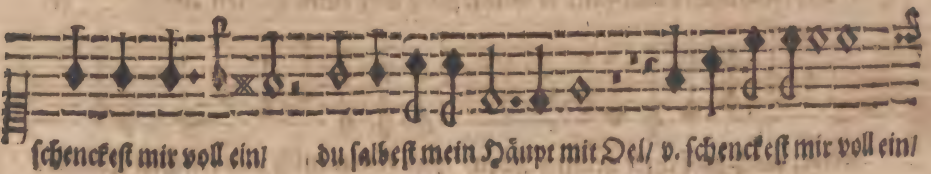 schenckest mir voll ein/ du salbest mein Häupt mit Oel/ v. schenckest mir voll ein/